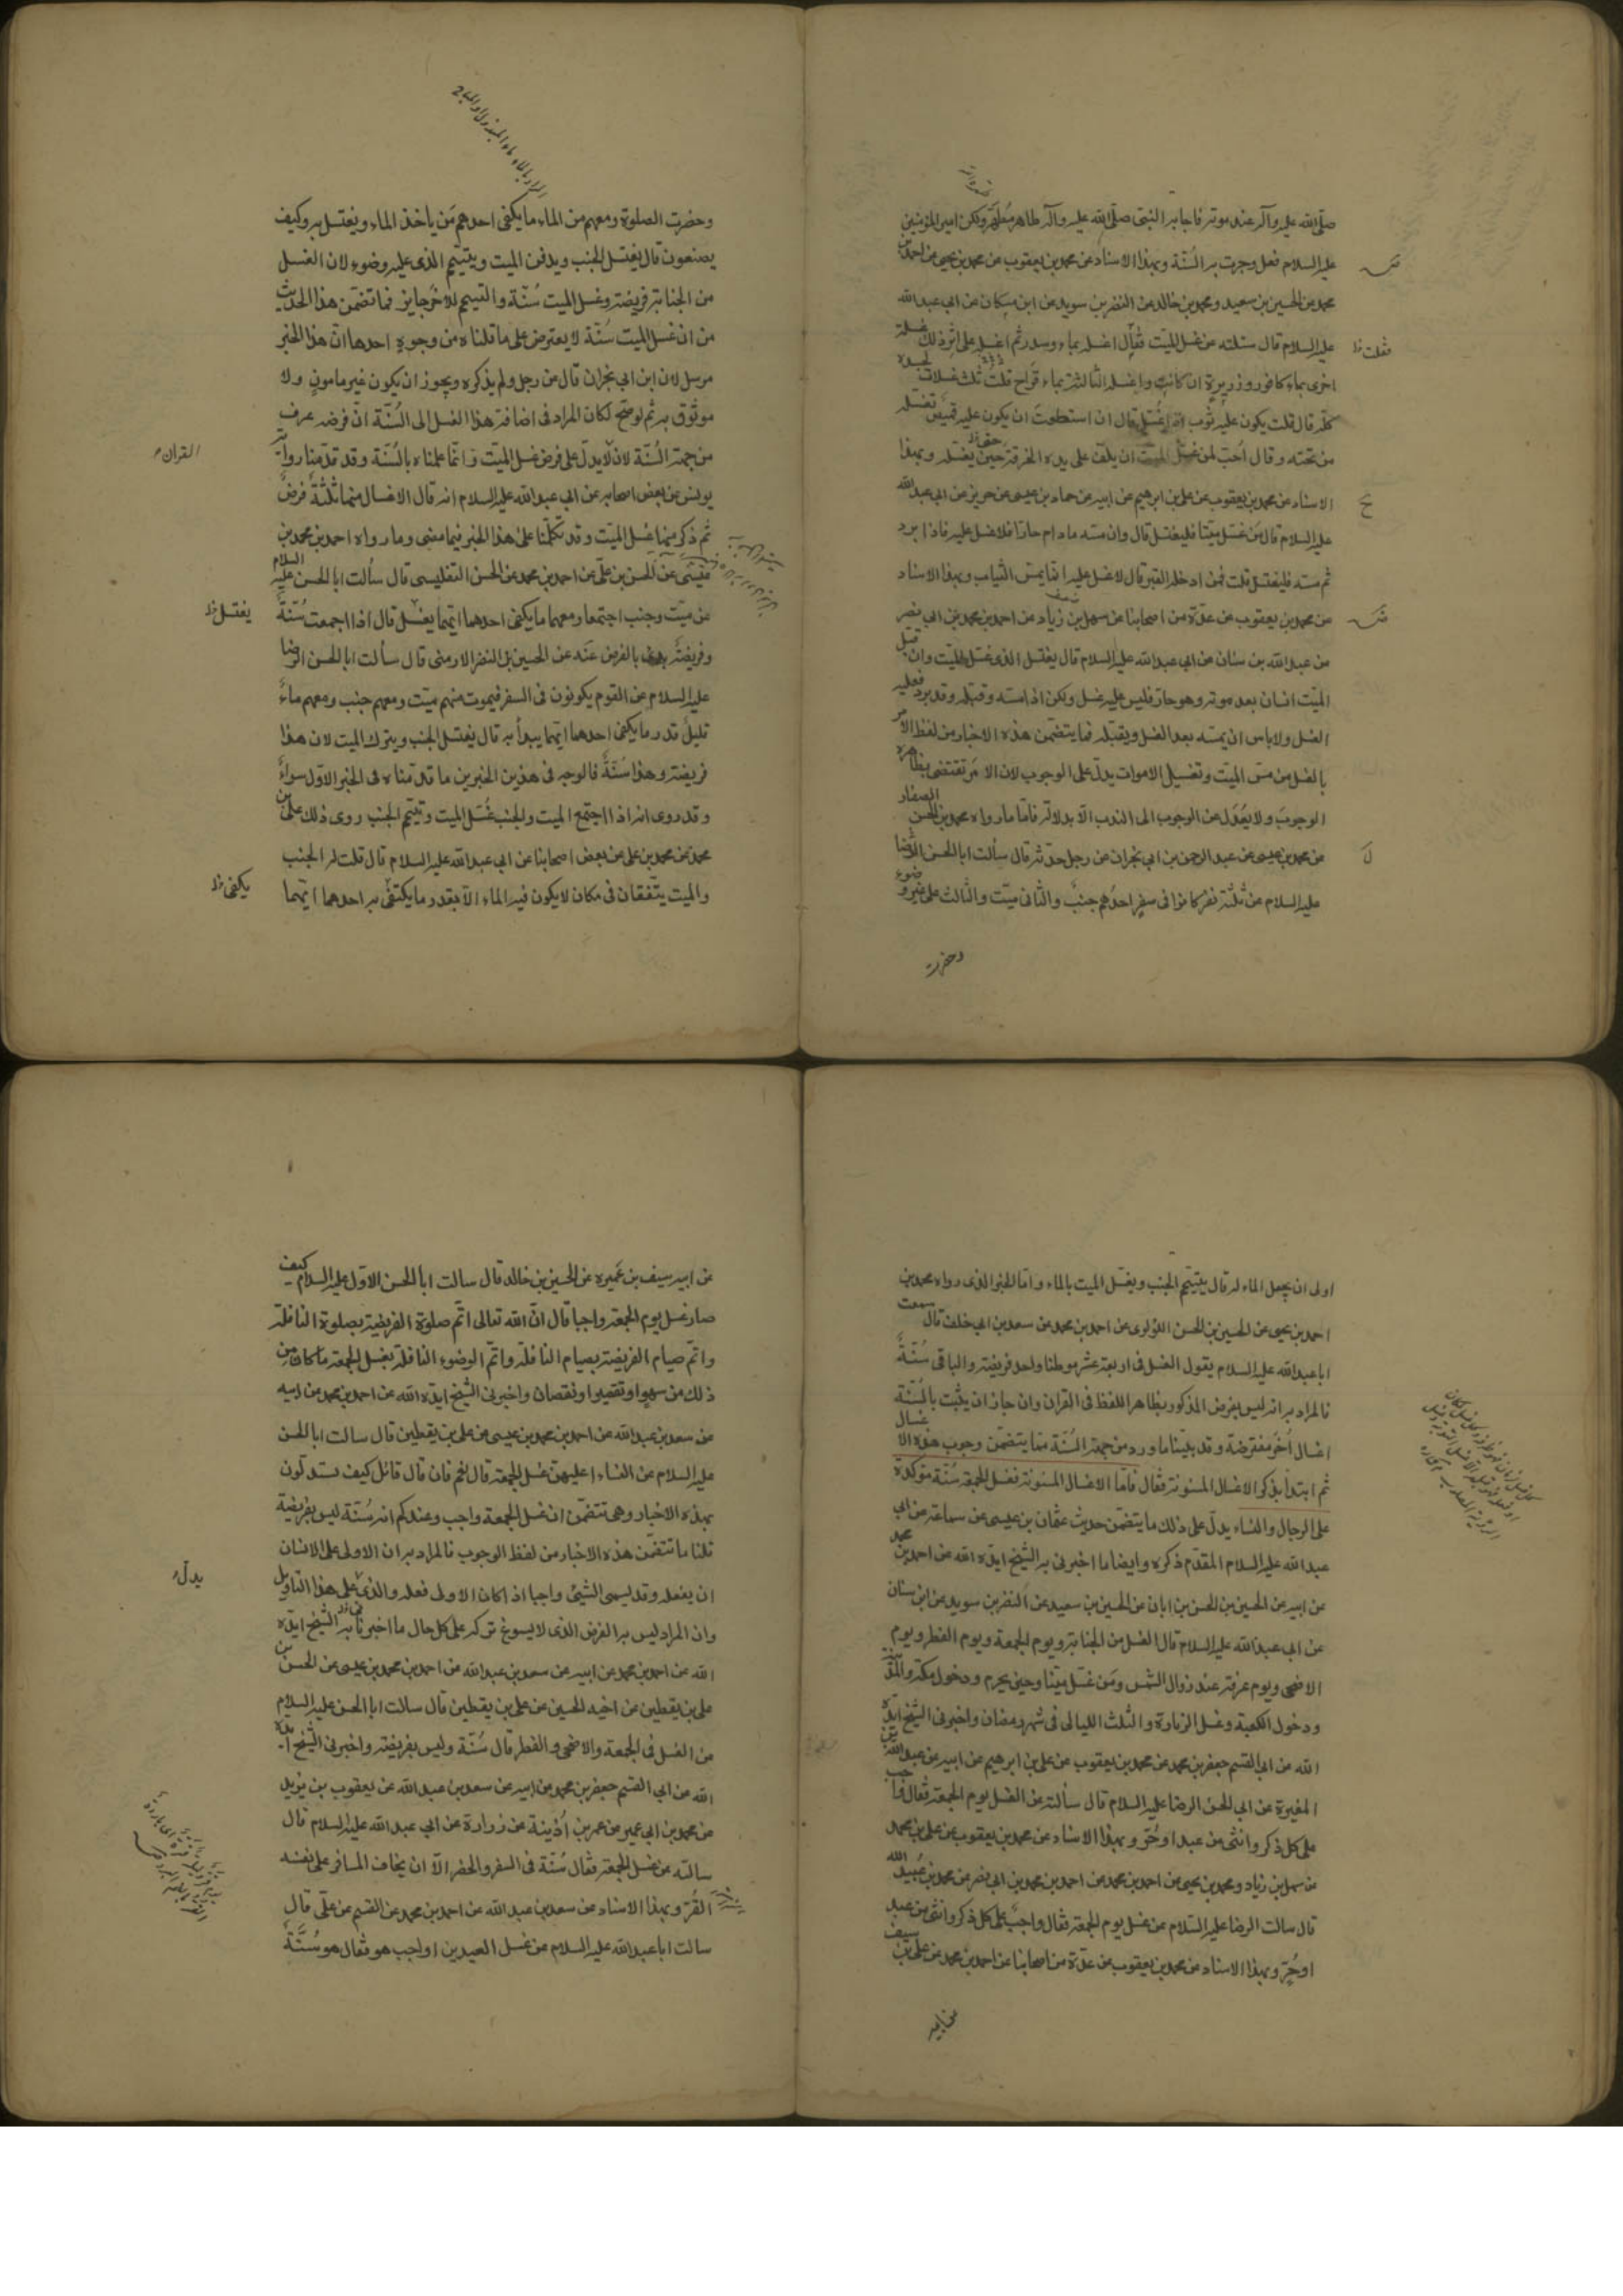 صلّى الله عليه وآله عند موته فاجابه النبى صلّى الله عليه وآله طاهر مُطهّر ولكن امير المؤمنين
عليه السلام فعل وجرت به السُنّة وبهذا الاسناد عن محمد بن يعقوب عن محمد بن يحيى عن احمد بن
محمد عن الحسين بن سعيد ومحمد بن خالد عن النضر بن سويد عن ابن مسكان عن ابى عبد الله
عليه السلام قال سئلته عن غسل الميّت فقال اغسله بماء وسدر ثم اغسله على اثر ذلك غسلة
فقلت خ
اخرى بماء كافور وذريرة ان كانت واغسله الثالثة بماء قراح قلتُ ثلث غسلات لجسده
كلّه قال قلت يكون عليه ثوب اذا غُسل قال ان استطعت ان يكون عليه قميص تغسله
من تحته وقال اُحبّ لمن غسّل الميّت ان يلفّ على يده الخرقة حين يغسله وبهذا
الاسناد عن محمد بن يعقوب عن على بن ابرهيم عن ابيه عن حماد بن عيسى عن حريز عن ابى عبد الله
عليه السلام قال مَن غسّل ميّتا فليغتسل قال وان مسّه مادام حارّا فلا غسل عليه فاذا برد
ثم مسّه فليغتسل قلت فمن ادخله القبر قال لا غسل عليه انما يمسّ الثياب وبهذا الاسناد
عن محمد بن يعقوب عن عدّة من اصحابنا عن سهل بن زياد عن احمد بن محمد بن ابى نصر
عن عبد الله بن سنان عن ابى عبد الله عليه السلام قال يغتسل الذى غسّل الميّت وان قبّل
الميّت انسان بعد موته وهو حارّ فليس عليه غسل ولكن اذا مسّه وقبّله وقد برد فعليه
الغسل ولا باس ان يمسّه بعد الغسل ويقبّله فما يتضمّن هذه الاخبار من لفظ الامر
بالغسل من مسّ الميّت وتغسيل الاموات يدلّ على الوجوب لان الامر تقتضى بظاهره
الوجوبَ ولا يُعدَل عن الوجوب الى الندب الّا بدلالة فامّا ما رواه محمد بن الحسن الصفار
عن محمد بن عيسى عن عبد الرحمن بن ابى نجران عن رجل حدّثه قال سألت ابا الحسن الرّضا
عليه السلام عن ثلثة نفر كانوا فى سفر احدُهم جنبٌ والثانى ميّت والثالث على غير وضوء
وحضرت
وحضرت الصلوة ومعهم من الماء ما يكفى احدهم مَن ياخذ الماء ويغتسل به وكيف
يصنعون قال يغتسل الجنب ويدفن الميت ويتيمّم الذى عليه وضوء لان الغسل
من الجنابة فريضة وغسل الميت سُنّة والتيمم للاخر جايز فما تضمّن هذا الحديث
من ان غسل الميّت سُنّة لا يعترض على ما قلناه من وجوهٍ احدها انّ هذا الخبر
مرسل لان ابن ابى نجران قال عن رجل ولم يذكره ويجوز ان يكون غير مامونٍ ولا
موثوق به ثم لو صحّ لكان المراد فى اضافة هذا الغسل الى السُنّة انّ فرضه عرف
من جهة السُنّة لان لا يدلّ على فرض غسل الميّت وانما علمناه بالسُنّة وقد قدّمنا رواية
القران
يونس عن بعض اصحابه عن ابى عبد الله عليه السلام انه قال الاغسال منها ثلثةٌ فرضٌ
ثم ذكر منها غسل الميّت وقد تكلّمنا على هذا الخبر فيما مضى وما رواه احمد بن محمد بن
عيسى عن الحسن بن علّى عن احمد بن محمد عن الحسن التفليسى قال سألت ابا الحسن عليه السلام
عن ميّت وجنب اجتمعا ومعهما ما يكفى احدهما ايّهما يغسّل قال اذا اجتمعت سُنّةٌ
يغتسل خ
وفريضةٌ بدئ بالفرض عنه عن الحسين بن النضر الارمنى قال سألت ابا الحسن الرضا
عليه السلام عن القوم يكونون فى السفر فيموت منهم ميّت ومعهم جنب ومعهم ماءٌ
قليلٌ قدر ما يكفى احدهما ايّهما يبدأ به قال يغتسل الجنب ويترك الميت لان هذا
فريضة وهذا سُنّةٌ فالوجه فى هذين الخبرين ما قدّمناه فى الخبر الاوّل سواءً
وقد روى انه اذا اجتمع الميت والجنب غُسّل الميت وتيمّم الجنب روى ذلك على بن
محمد عن محمد بن على عن بعض اصحابنا عن ابى عبد الله عليه السلام قال قلت له الجنب
والميت يتّفقان فى مكان لا يكون فيه الماء الّا بقدر ما يكتفى به احدهما ايّهما
يكفى خ
اولى ان يجعل الماء له قال يتيمّم الجنب ويغسّل الميت بالماء وامّا الخبر الذى رواه محمد بن
احمد بن يحيى عن الحسين بن الحسن اللؤلوى عن احمد بن محمد عن سعد بن ابى خلف قال سمعت
ابا عبد الله عليه السلام يقول الغسل فى اربعة عشر موطنا واحد فريضة والباقى سُنّةٌ
فالمراد به انه ليس بفرض المذكور بظاهر اللفظ فى القران وان جاز ان يثبت بالسُنّة
اغسال اُخَر مفترضة وقد بيّنا ما ورد من جهة السُنّة مما يتضمّن وجوب هذه الاغسال
ثم ابتدأ بذكر الاغسال المسنونة فقال فامّا الاغسال المسنونة فغسل الجمعة سُنّة مؤكدة
على الرجال والنساء يدلّ على ذلك ما يتضمن حديث عثمان بن عيسى عن سماعة عن ابى
عبد الله عليه السلام المقدّم ذكره وايضا ما اخبرنى به الشيخ ايّده الله عن احمد بن محمد
عن ابيه عن الحسين بن الحسن بن ابان عن الحسين بن سعيد عن النضر بن سويد عن ابن سنان
عن ابى عبد الله عليه السلام قال الغسل من الجنابة ويوم الجمعة ويوم الفطر ويوم
الاضحى ويوم عرفة عند زوال الشمس ومَن غسّل ميّتا وحين يحرم ودخول مكة والمدينة
ودخول الكعبة وغسل الزيارة والثلث الليالى فى شهر رمضان واخبرنى الشيخ ايّده
الله عن ابى القسم جعفر بن محمد عن محمد بن يعقوب عن على بن ابرهيم عن ابيه عن عبد الله بن
المغيرة عن ابى الحسن الرضا عليه السلام قال سألته عن الغسل يوم الجمعة فقال واجب
على كل ذكر وانثى من عبد اوحُرّ وبهذا الاسناد عن محمد بن يعقوب عن على بن محمد
عن سهل بن زياد ومحمد بن يحيى عن احمد بن محمد عن احمد بن محمد بن ابى نصر عن محمد بن عُبيد الله
قال سالت الرضا عليه السّلام عن غسل يوم الجمعة فقال واجبٌ على كل ذكر وانثى من عبد
اوحُرّ وبهذا الاسناد عن محمد بن يعقوب عن عدّة من اصحابنا عن احمد بن محمد عن على بن سيف
عن ابيه
عن ابيه سيف بن عَميرة عن الحسين بن خالد قال سالت ابا الحسن الاوّل عليه السلام كيف
صار غسل يوم الجمعة واجبا قال انّ الله تعالى اتّم صلوة الفريضة بصلوة النافلة
واتّم صيام الفريضة بصيام النافلة واتّم الوضوء النافلة بغسل الجمعة ما كان من
ذلك من سهو او تقصير او نقصان واخبرنى الشيخ ايّده الله عن احمد بن محمد عن ابيه
عن سعد بن عبد الله عن احمد بن محمد بن عيسى عن على بن يقطين قال سالت ابا الحسن
عليه السلام عن النساء اعليهنّ غسل الجمعة قال نعم فان قال قائل كيف تستدلّون
بهذه الاخبار وهى تتضمّن ان غسل الجمعة واجب وعندكم انه سُنّة ليس بفريضة
قلنا ما تتضمّن هذه الاخبار من لفظ الوجوب فالمراد به ان الاولى على الانسان
ان يفعله وقد يسمى الشيئ واجبا اذا كان الاولى فعله والذى على هذا التاويل
يدلّ
وان المراد ليس به الفرض الذى لا يسوغ تركه على كل حال ما اخبرنا به الشيخ ايّده
الله عن احمد بن محمد عن ابيه عن سعد بن عبد الله عن احمد بن محمد بن عيسى عن الحسن بن
على بن يقطين عن اخيه الحسين عن على بن يقطين قال سالت ابا الحسن عليه السلام
عن الغسل فى الجمعة والاضحى والفطر قال سُنّة وليس بفريضة واخبرنى الشيخ ايّده
الله عن ابى القسم جعفر بن محمد عن ابيه عن سعد بن عبد الله عن يعقوب بن يزيد
عن محمد بن ابى عمير عن عمر بن اُذينة عن زرارة عن ابى عبد الله عليه السلام قال
سالته عن غسل الجمعة فقال سُنّة فى السفر والحضر الّا ان يخاف المسافر على نفسه
القُرّ وبهذا الاسناد عن سعد بن عبد الله عن احمد بن محمد عن القسم عن علّى قال
سالت ابا عبد الله عليه السلام عن غسل العيدين اواجب هو فقال هو سُنّةٌ